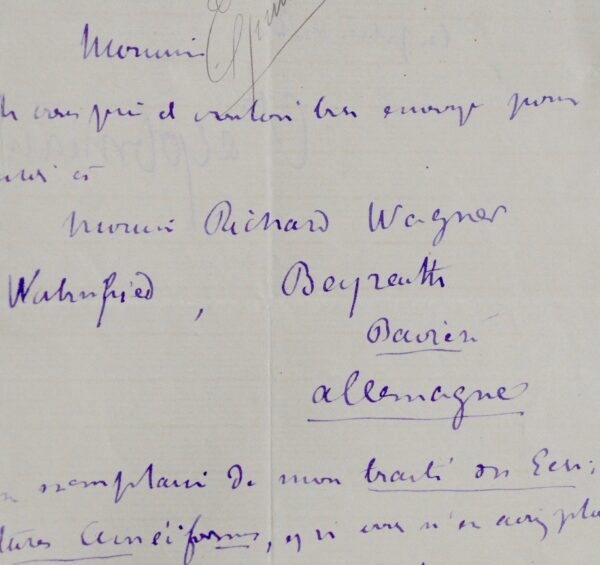 Monsieur
vous prie de vouloir bien envoyer pour
à
Monsieur Richard Wagner
Wahnfried, Beyreuth
Bavière
allemagne
exemplaire de mon traité des Ecri-
tures Cunéiformes, vous n'en avez plu